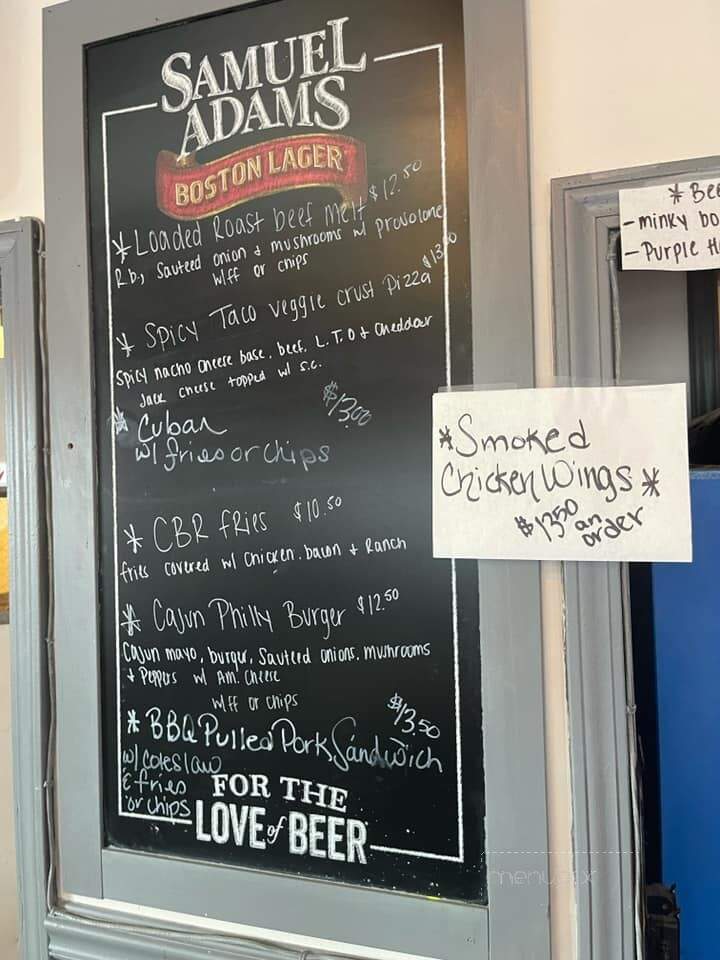 SAMUEL
ADAMS
BOSTON LAGER
* Loaded Roast beef melt $12.50
R.b., Sauteed onion & mushrooms w/ provolone
w/ff or chips
* Spicy Taco veggie crust Pizza
Spicy nacho cheese base, beef, L.T.O & Cheddar
Jack cheese topped w/ s.c.
* Cuban $13.00
w/ fries or chips
* CBR fries $10.50
fries covered w/ chicken, bacon & Ranch
* Cajun Philly Burger $12.50
Cajun mayo, burger, Sauteed onions, mushrooms
& Peppers w/ Am. Cheese
w/ff or chips
* BBQ Pulled Pork Sandwich $13.50
w/ coleslaw
& fries
or chips
FOR THE
LOVE of BEER
* Smoked
Chicken Wings *
$13.50 an
order
* Bee
- minky bo
- Purple H
menupix